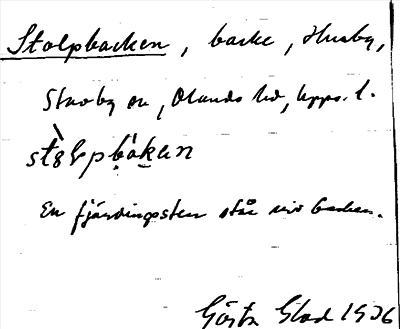 Stolpbacken, backe, Husby,
Stavby sn, Olands hd, Upps. l.
stòlpbákan
En fjärdingsten står vid backen.
Gösta Glad 1936